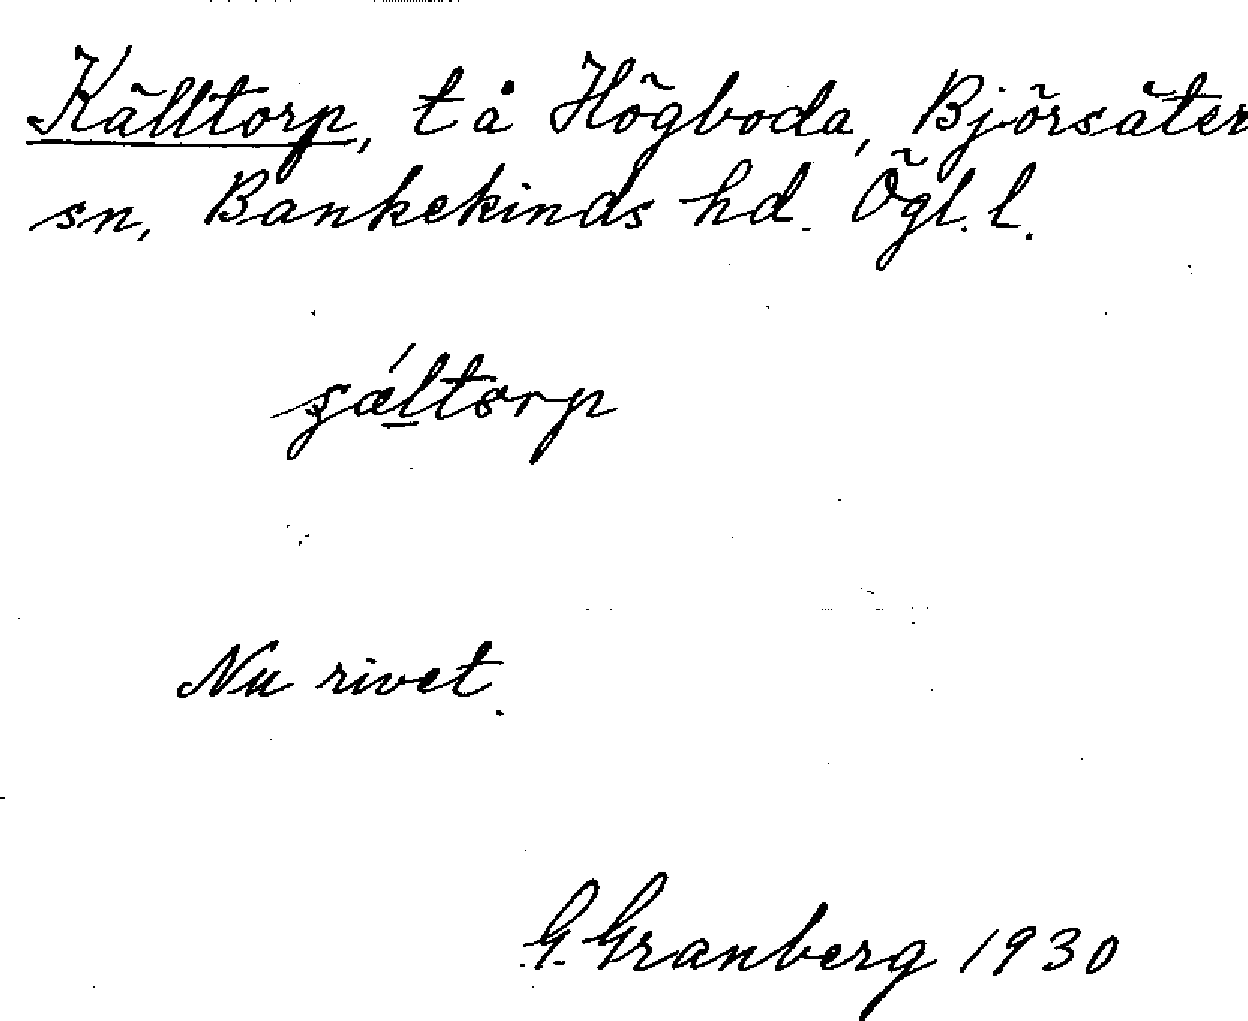 Källtorp, t å Högboda, Björsäter
sn, Bankekinds hd. Ögl. l.
Nu rivet.
G. Granberg 1930